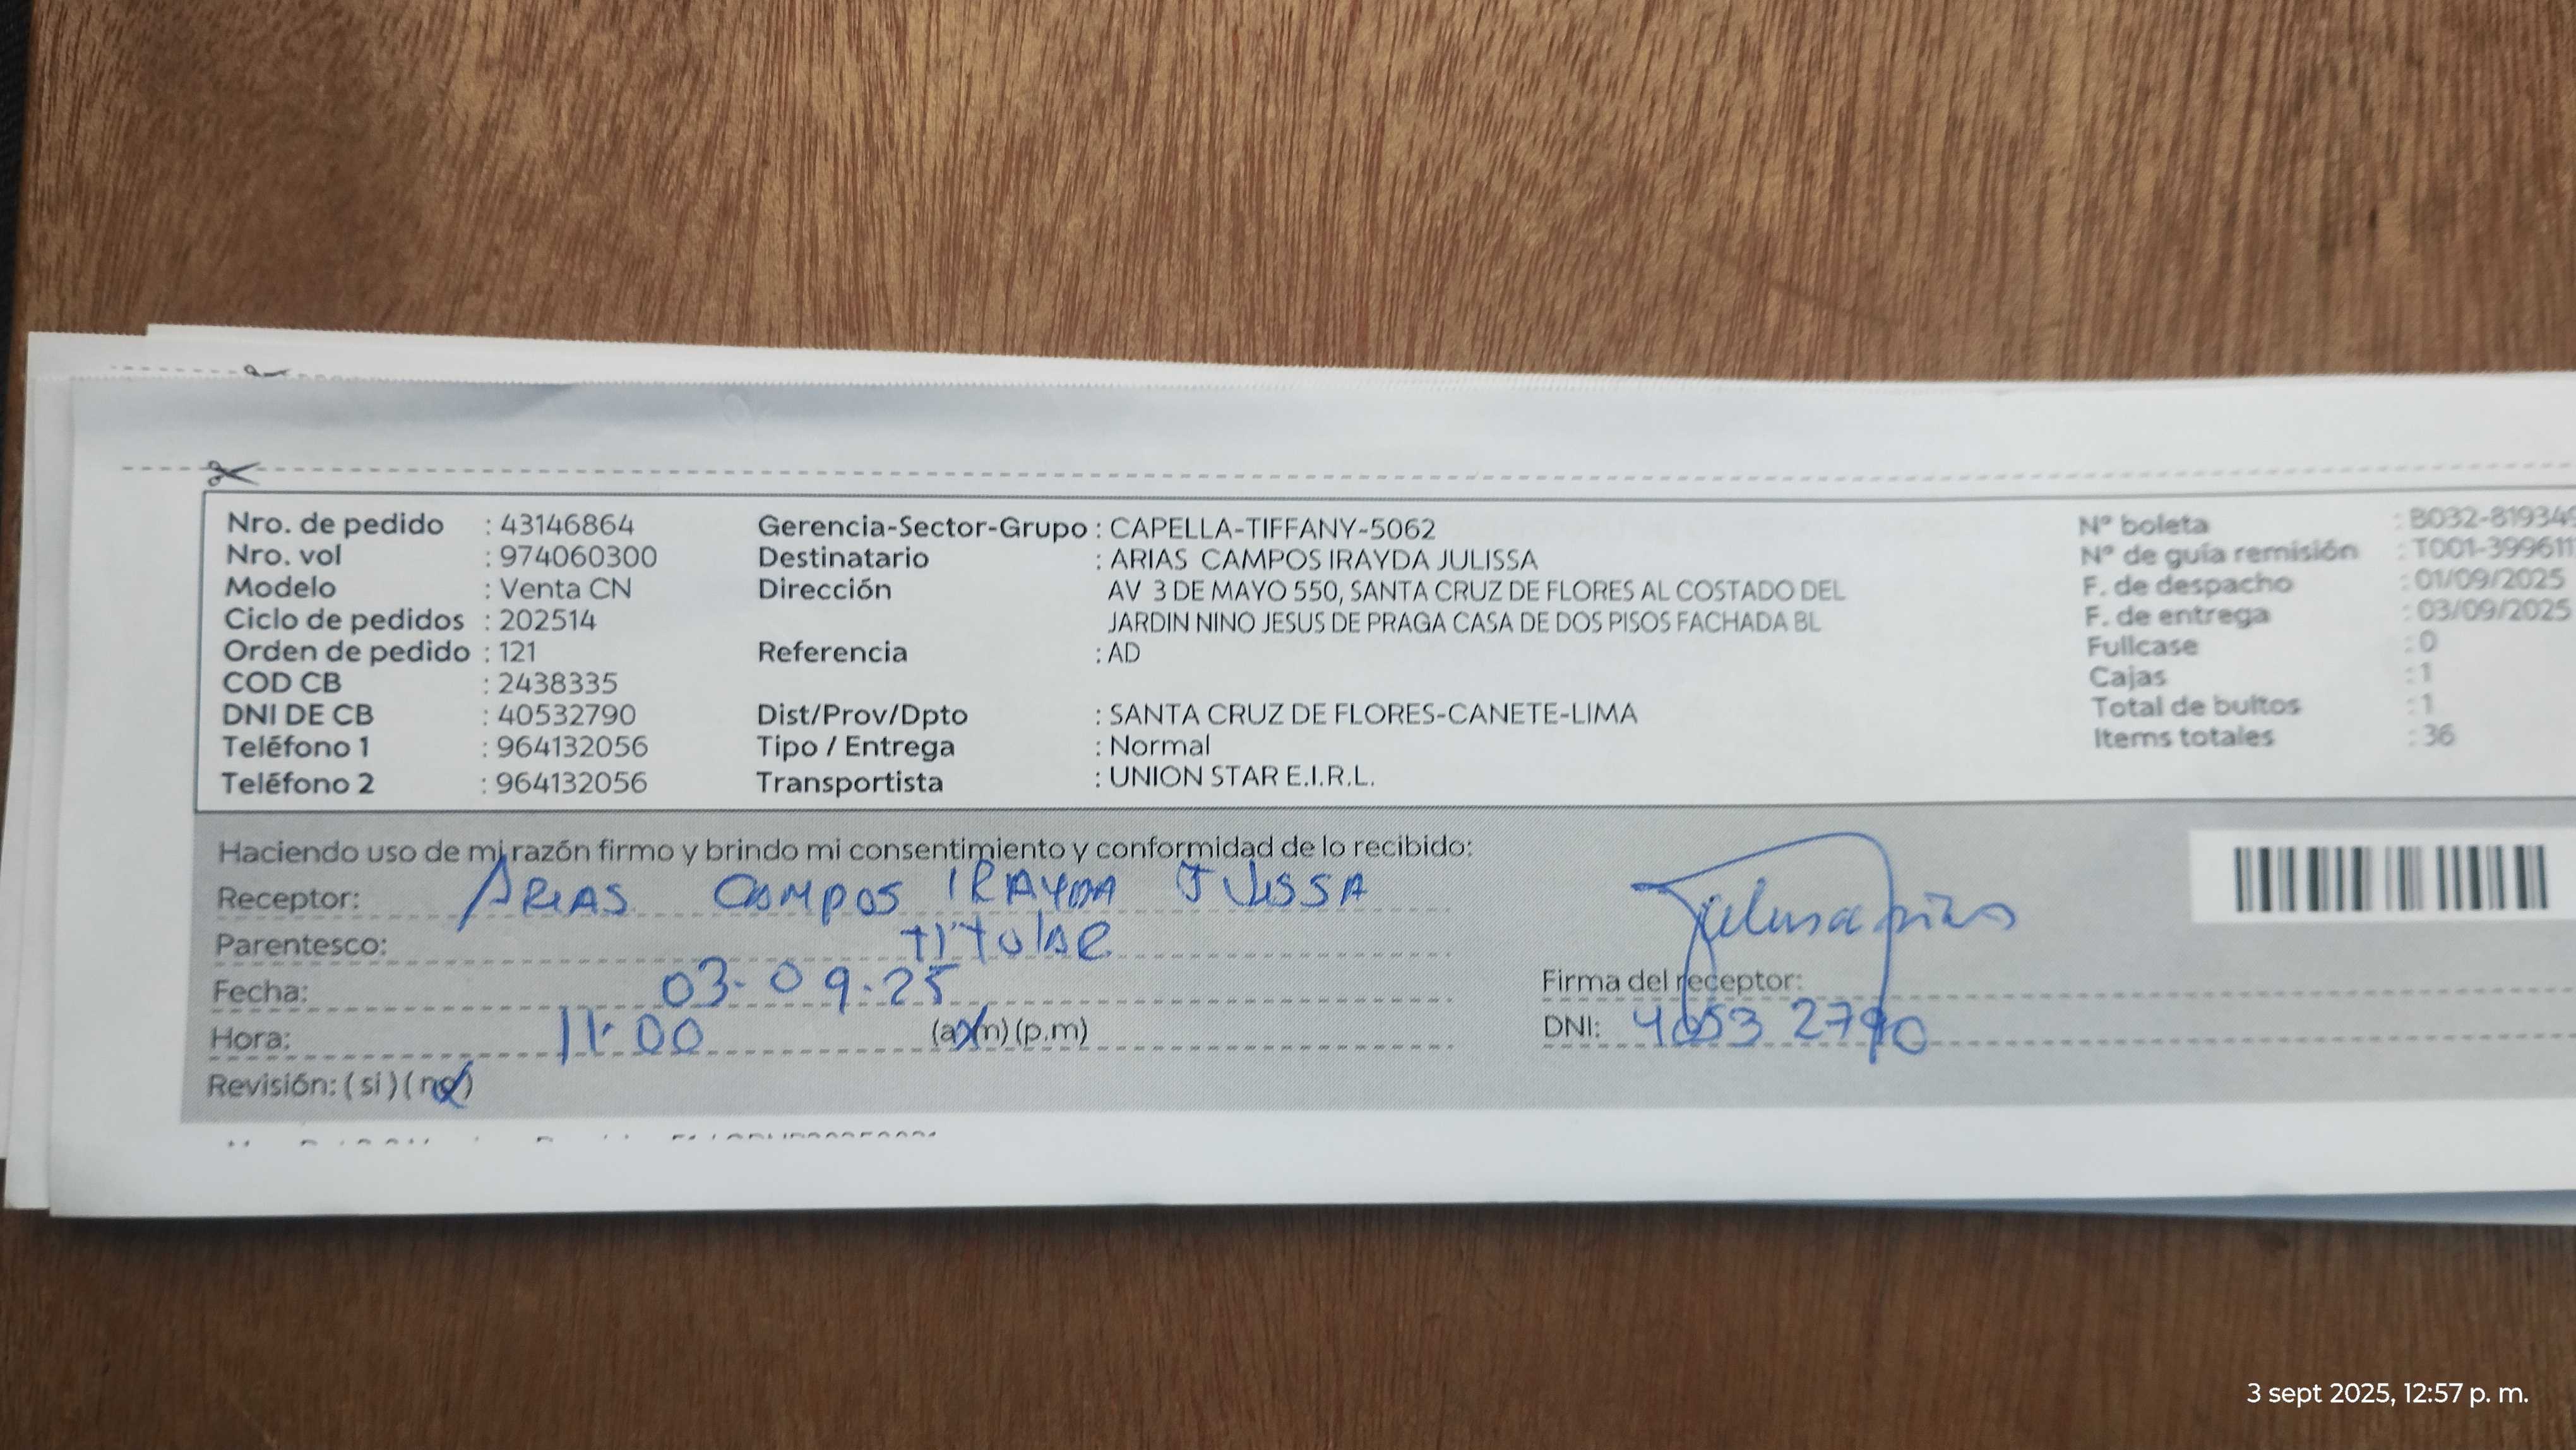 Nro. de pedido : 43146864
Nro. vol : 974060300
Modelo : Venta CN
Ciclo de pedidos : 202514
Orden de pedido : 121
COD CB : 2438335
DNI DE CB : 40532790
Teléfono 1 : 964132056
Teléfono 2 : 964132056
Gerencia-Sector-Grupo : CAPELLA-TIFFANY-5062
Destinatario : ARIAS CAMPOS IRAYDA JULISSA
Dirección AV 3 DE MAYO 550, SANTA CRUZ DE FLORES AL COSTADO DEL
JARDIN NINO JESUS DE PRAGA CASA DE DOS PISOS FACHADA BL
Referencia : AD
Dist/Prov/Dpto : SANTA CRUZ DE FLORES-CANETE-LIMA
Tipo / Entrega : Normal
Transportista : UNION STAR E.I.R.L.
N° boleta : B032-819349
N° de guía remisión : T001-399611
F. de despacho : 01/09/2025
F. de entrega : 03/09/2025
Fullcase : 0
Cajas : 1
Total de bultos : 1
Items totales : 36
Haciendo uso de mi razón firmo y brindo mi consentimiento y conformidad de lo recibido:
Receptor: ARIAS CAMPOS IRAYDA JULISSA
Parentesco: TITULAR
Fecha: 03-09-25
Hora: 11:00 (a.m) (p.m)
Revisión: ( si ) ( no )
Firma del receptor:
DNI: 40532790
3 sept 2025, 12:57 p. m.